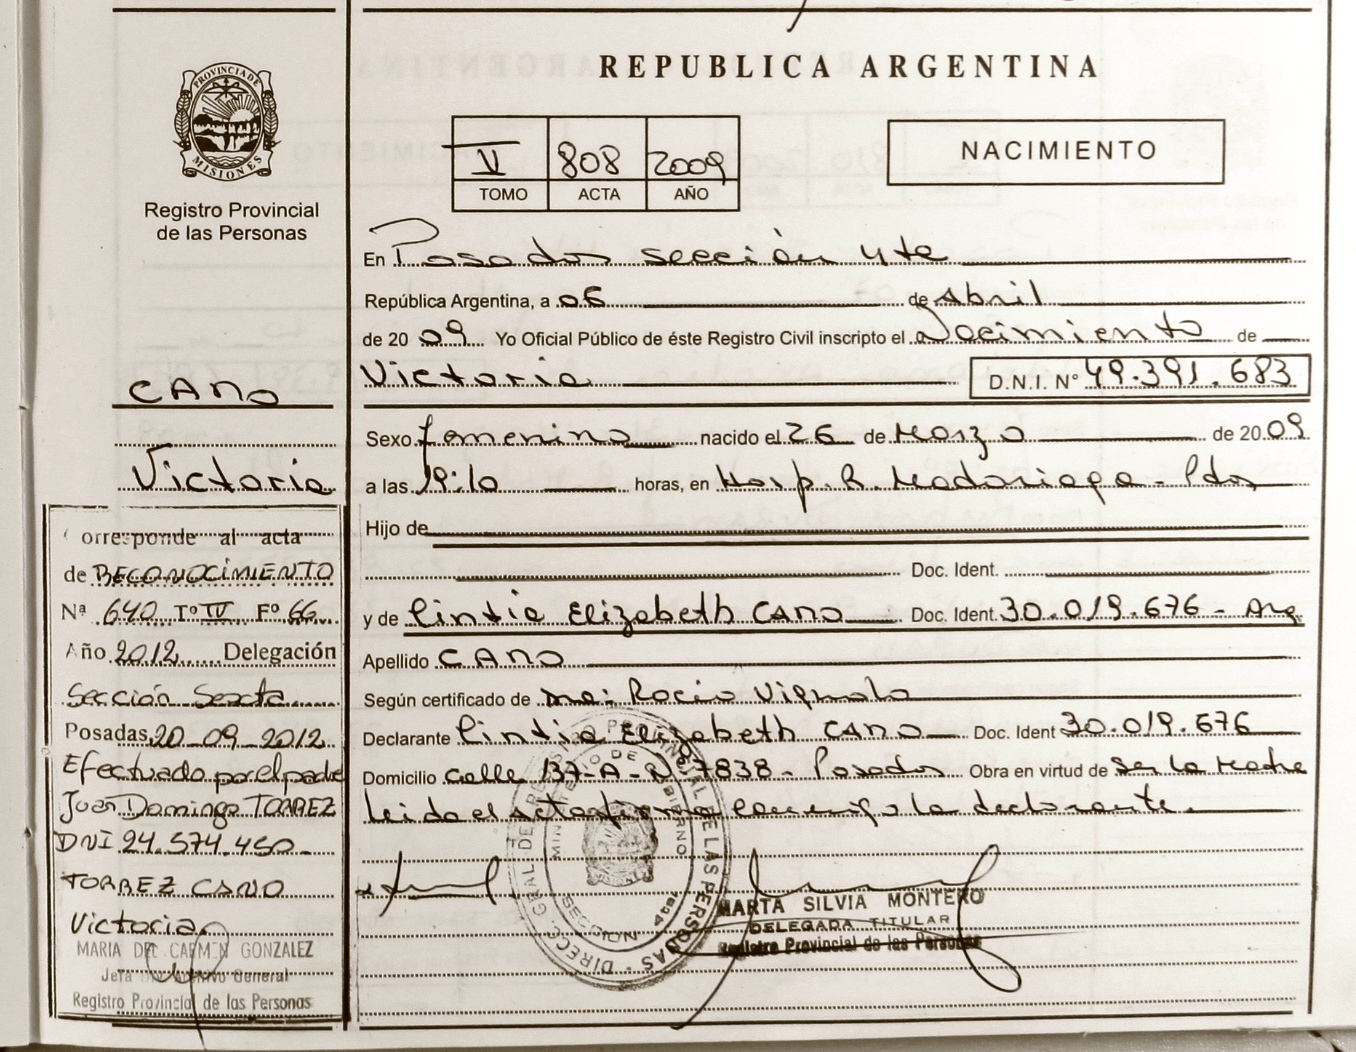 REPUBLICA ARGENTINA
PROVINCIA DE
MISIONES
Registro Provincial
de las Personas
V 808 2009
TOMO ACTA AÑO
NACIMIENTO
En Posadas sección 4ta
República Argentina, a 06 de Abril
de 2009 Yo Oficial Público de éste Registro Civil inscripto el Nacimiento de
Victoria D.N.I. Nº 49.391.683
Sexo femenino nacido el 26 de Marzo de 2009
a las 19:10 horas, en Hosp. R. Madariaga - Pdas
Hijo de
Doc. Ident.
y de Cintia Elizabeth CANO Doc. Ident. 30.019.676 - Arg
Apellido CANO
Según certificado de Rocio Vignola
Declarante Cintia Elizabeth CANO Doc. Ident 30.019.676
Domicilio calle 137-A-Nº 7838 - Posadas Obra en virtud de Ser la Madre
Leida el acta firma conmigo la declarante.
MARTA SILVIA MONTERO
DELEGADA TITULAR
Registro Provincial de las Personas
DIRECC. GRAL. DE REGISTRO PROVINCIAL DE LAS PERSONAS
MINISTERIO DE GOBIERNO
SECCION 4ta.
CANO
Victoria
Corresponde al acta
de RECONOCIMIENTO
Nª 640 Tº IV Fº 66
Año 2012 Delegación
Sección Sexta
Posadas, 20-09-2012
Efectuado por el padre
Juan Domingo TORREZ
DNI 24.574.450-
TORREZ CANO
Victoria
MARIA DEL CARMEN GONZALEZ
Jefa Archivo General
Registro Provincial de las Personas